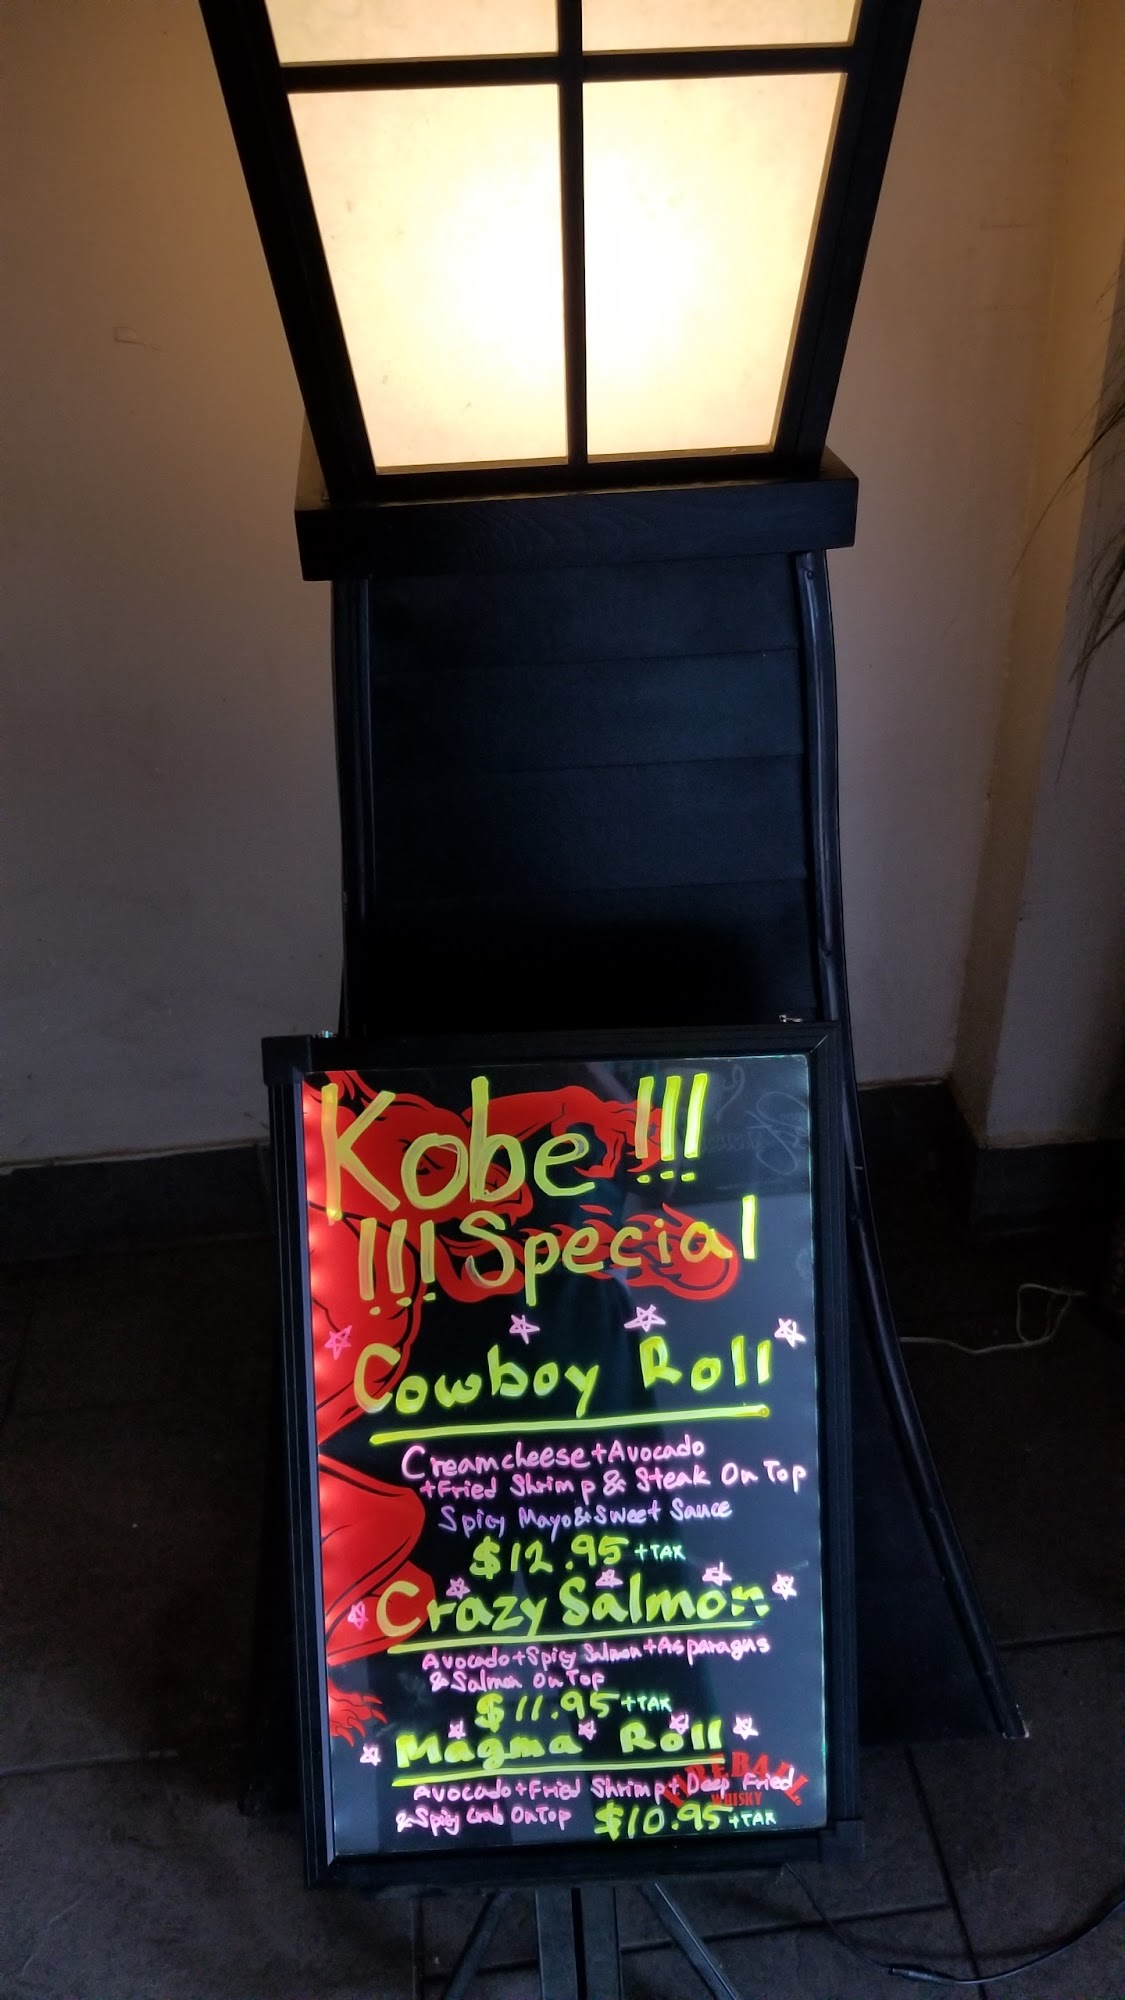 Kobe !!!
!!! Special
Cowboy Roll
Creamcheese + Avocado
+ Fried Shrimp & Steak On Top
Spicy Mayo & Sweet Sauce
$12.95 + TAX
Crazy Salmon
Avocado + Spicy Salmon + Asparagus
& Salmon On Top
$11.95 + TAX
Magma Roll
Avocado + Fried Shrimp + Deep Fried
& Spicy Crab On Top $10.95 + TAX
FIREBALL
WHISKY